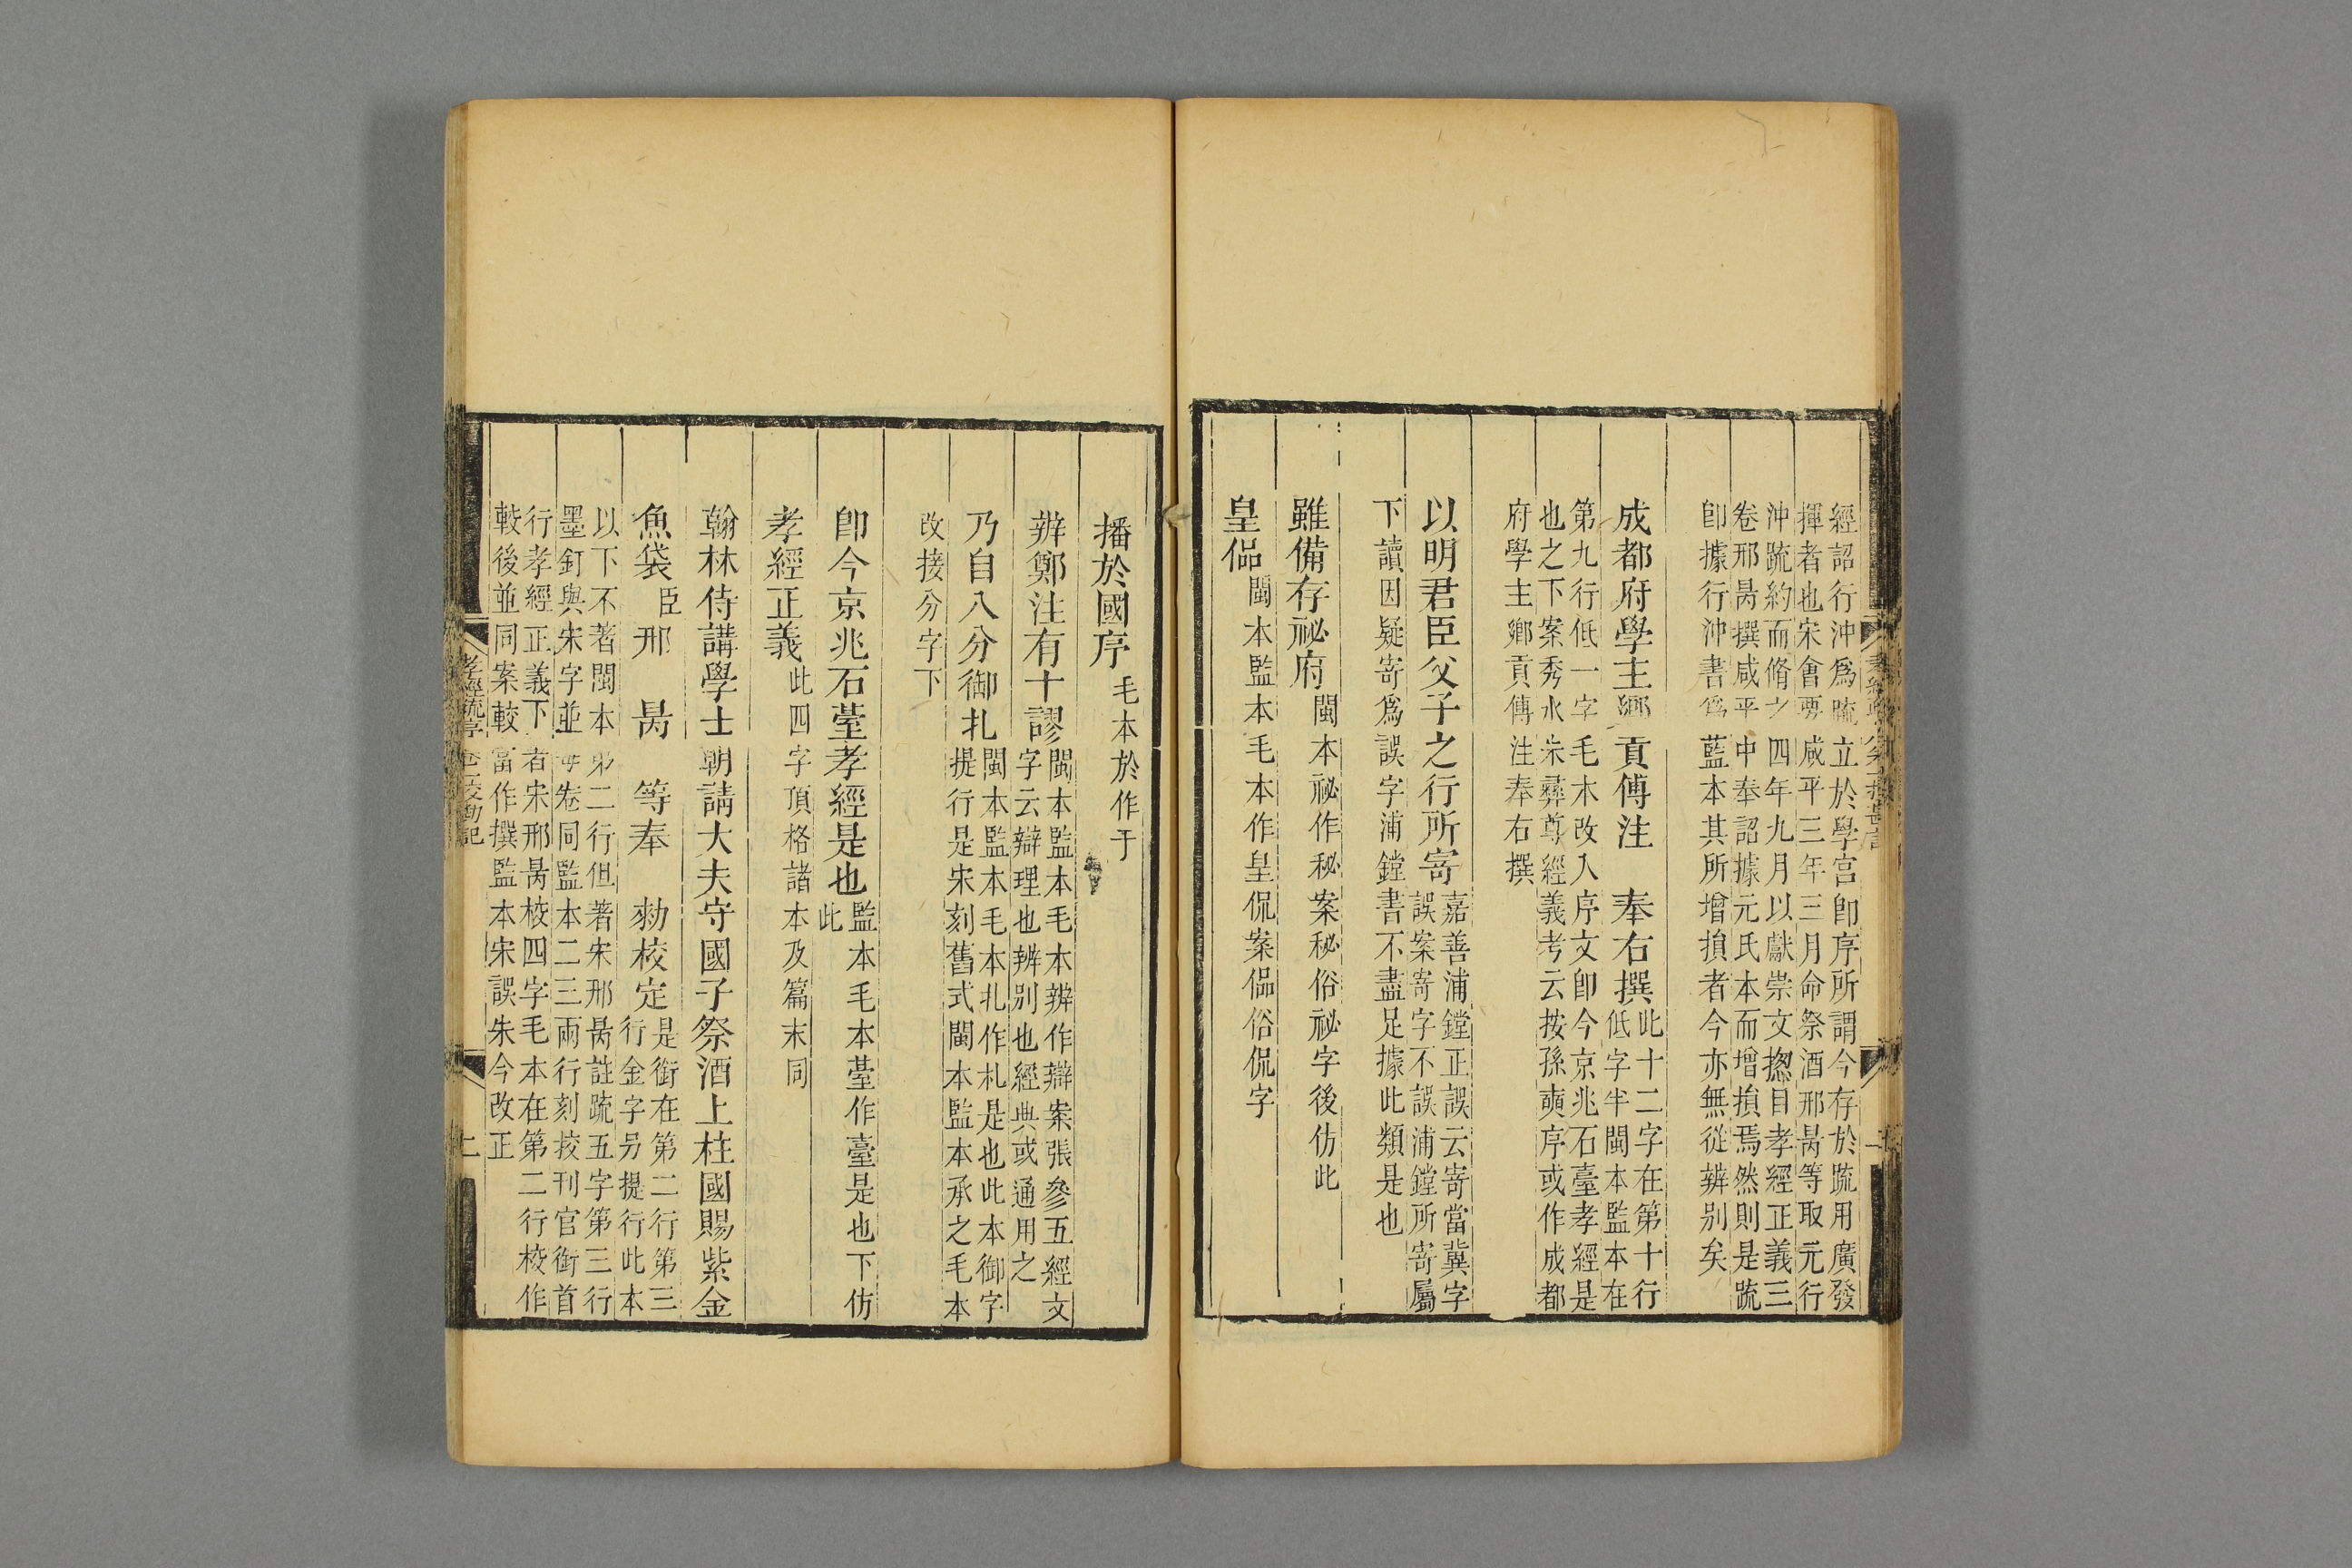 經詔行沖爲疏立於學宫卽序所謂今存於疏用廣發
揮者也宋會要咸平三年三月命祭酒邢昺等取元行
沖疏約而脩之四年九月以獻崇文揔目孝經正義三
卷邢昺撰咸平中奉詔據元氏本而增損焉然則是疏
卽據行沖書爲藍本其所增損者今亦無從辨别矣
成都府學主鄉貢傅注　奉右撰
此十二字在第十行
低字半閩本監本在
第九行低一字毛本改入序文卽今京兆石臺孝經是
也之下案秀水朱彝尊經義考云按孫奭序或作成都
府學主鄉貢傅注奉右撰
以明君臣父子之行所寄
嘉善浦鏜正誤云寄當冀字
誤案寄字不誤浦鏜所寄屬
下讀因疑寄爲誤字浦鏜書不盡足據此類是也
雖備存祕府閩本祕作秘案秘俗祕字後仿此
皇侃閩本監本毛本作皇侃案偘俗侃字
播於國序毛本於作于
辨鄭注有十謬
閩本監本毛本辨作辯案張參五經文
字云辯理也辨别也經典或通用之
乃自八分御札
閩本監本毛本札作札是也此本御字
提行是宋刻舊式閩本監本承之毛本
改接分字下
卽今京兆石䑓孝經是也
監本毛本䑓作臺是也下仿
此
孝經正義此四字頂格諸本及篇末同
翰林侍講學士朝請大夫守國子祭酒上柱國賜紫金
魚袋臣邢　昺　等奉　勑校定
是銜在第二行第三
行金字另提行此本
以下不著閩本第二行但著宋邢昺註疏五字第三行
墨釘與宋字並每卷同監本二三兩行刻挍刊官銜首
行孝經正義下者宋邢昺校四字毛本在第二行校作
較後並同案較當作撰監本宋誤朱今改正
孝經疏序 校勘記
二